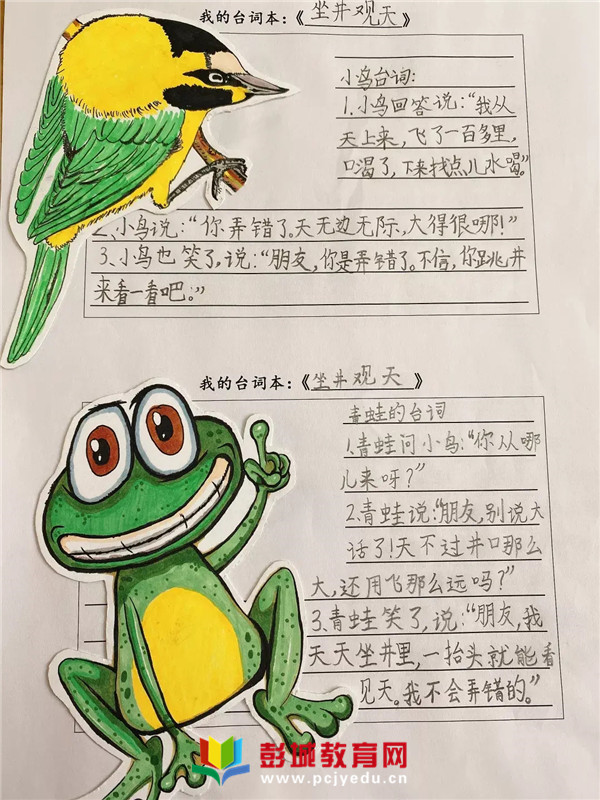 我的台词本：《坐井观天》
小鸟台词：
1.小鸟回答说：“我从
天上来，飞了一百多里，
口渴了，下来找点儿水喝。”
2、小鸟说：“你弄错了。天无边无际，大得很哪！”
3、小鸟也笑了，说：“朋友，你是弄错了。不信，你跳井
来看一看吧。”
我的台词本：《坐井观天》
青蛙的台词
1.青蛙问小鸟：“你从哪
儿来呀？”
2.青蛙说：“朋友，别说大
话了！天不过井口那么
大，还用飞那么远吗？”
3.青蛙笑了，说：“朋友，我
天天坐井里，一抬头就能看
见天。我不会弄错的。”
彭城教育网
www.pcjyedu.cn